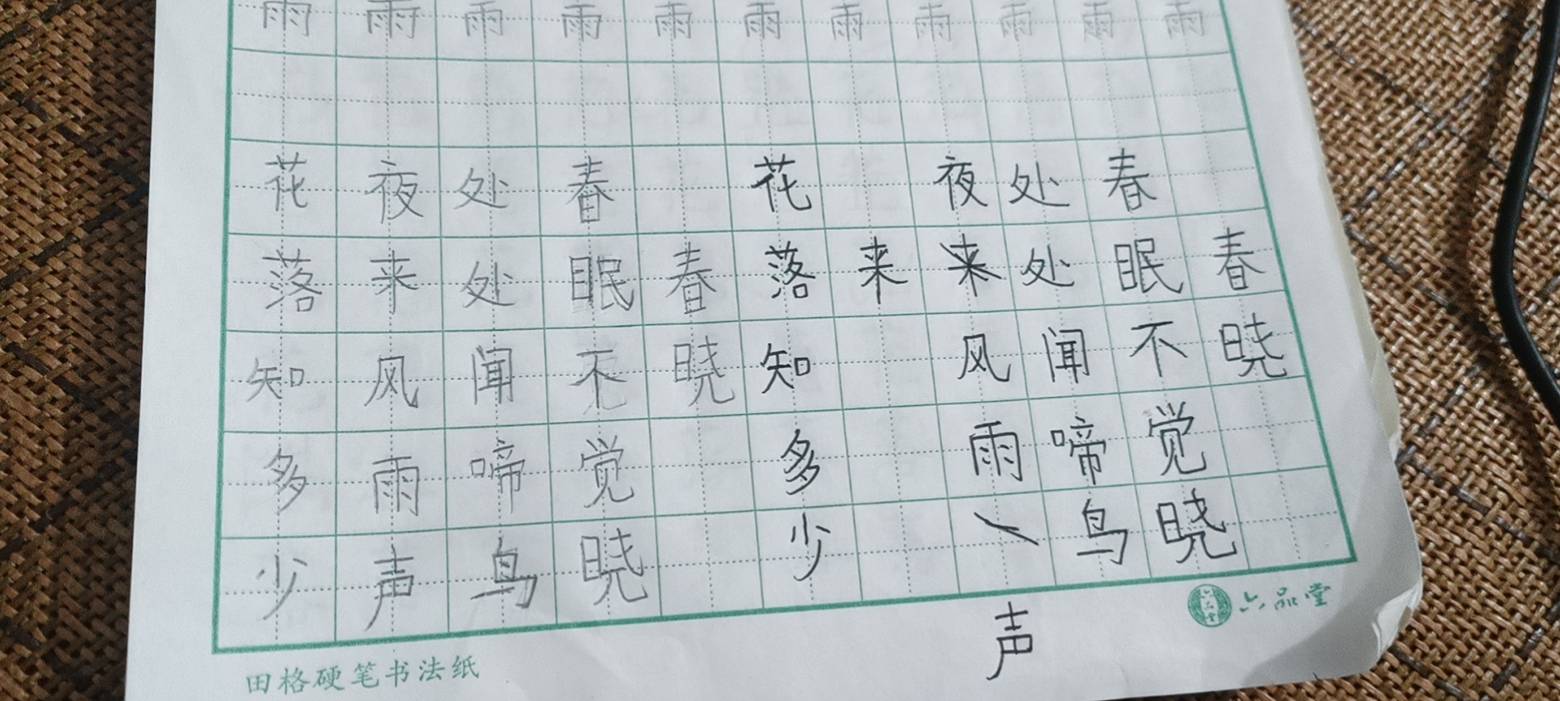 雨雨雨雨雨雨雨雨雨雨雨
春晓
春眠不觉晓
处处闻啼鸟
夜来风雨声
来
花落知多少
春晓
春眠不觉晓
处处闻啼鸟
夜来风雨声
花落知多少
六品堂
田格硬笔书法纸